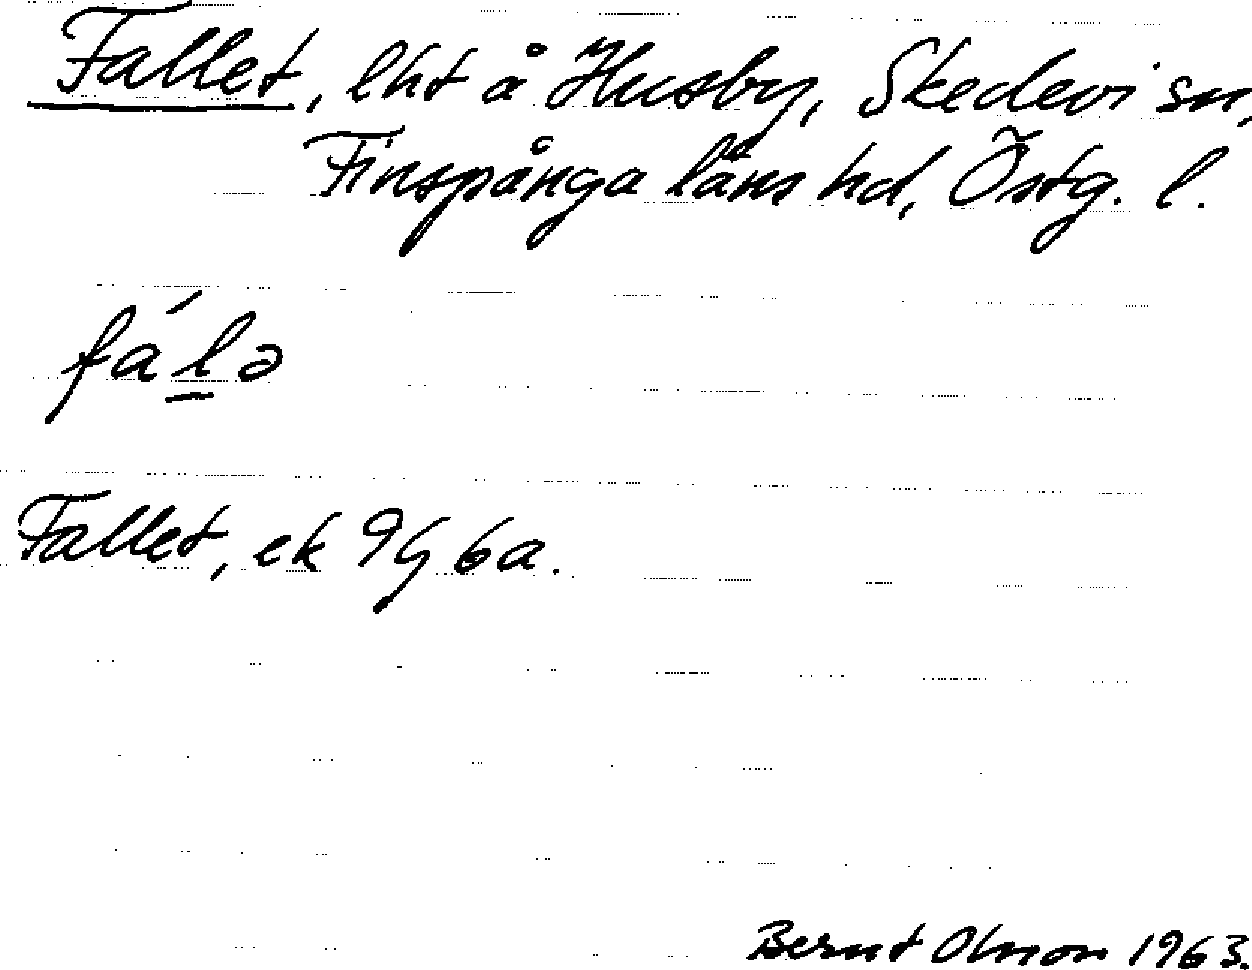 Fallet, lht å Husby, Skedevi sn,
Finspånga läns hd, Östg. l.
fá l̲ə
Fallet, ek 9G 6a.
Bernt Olsson 1963.